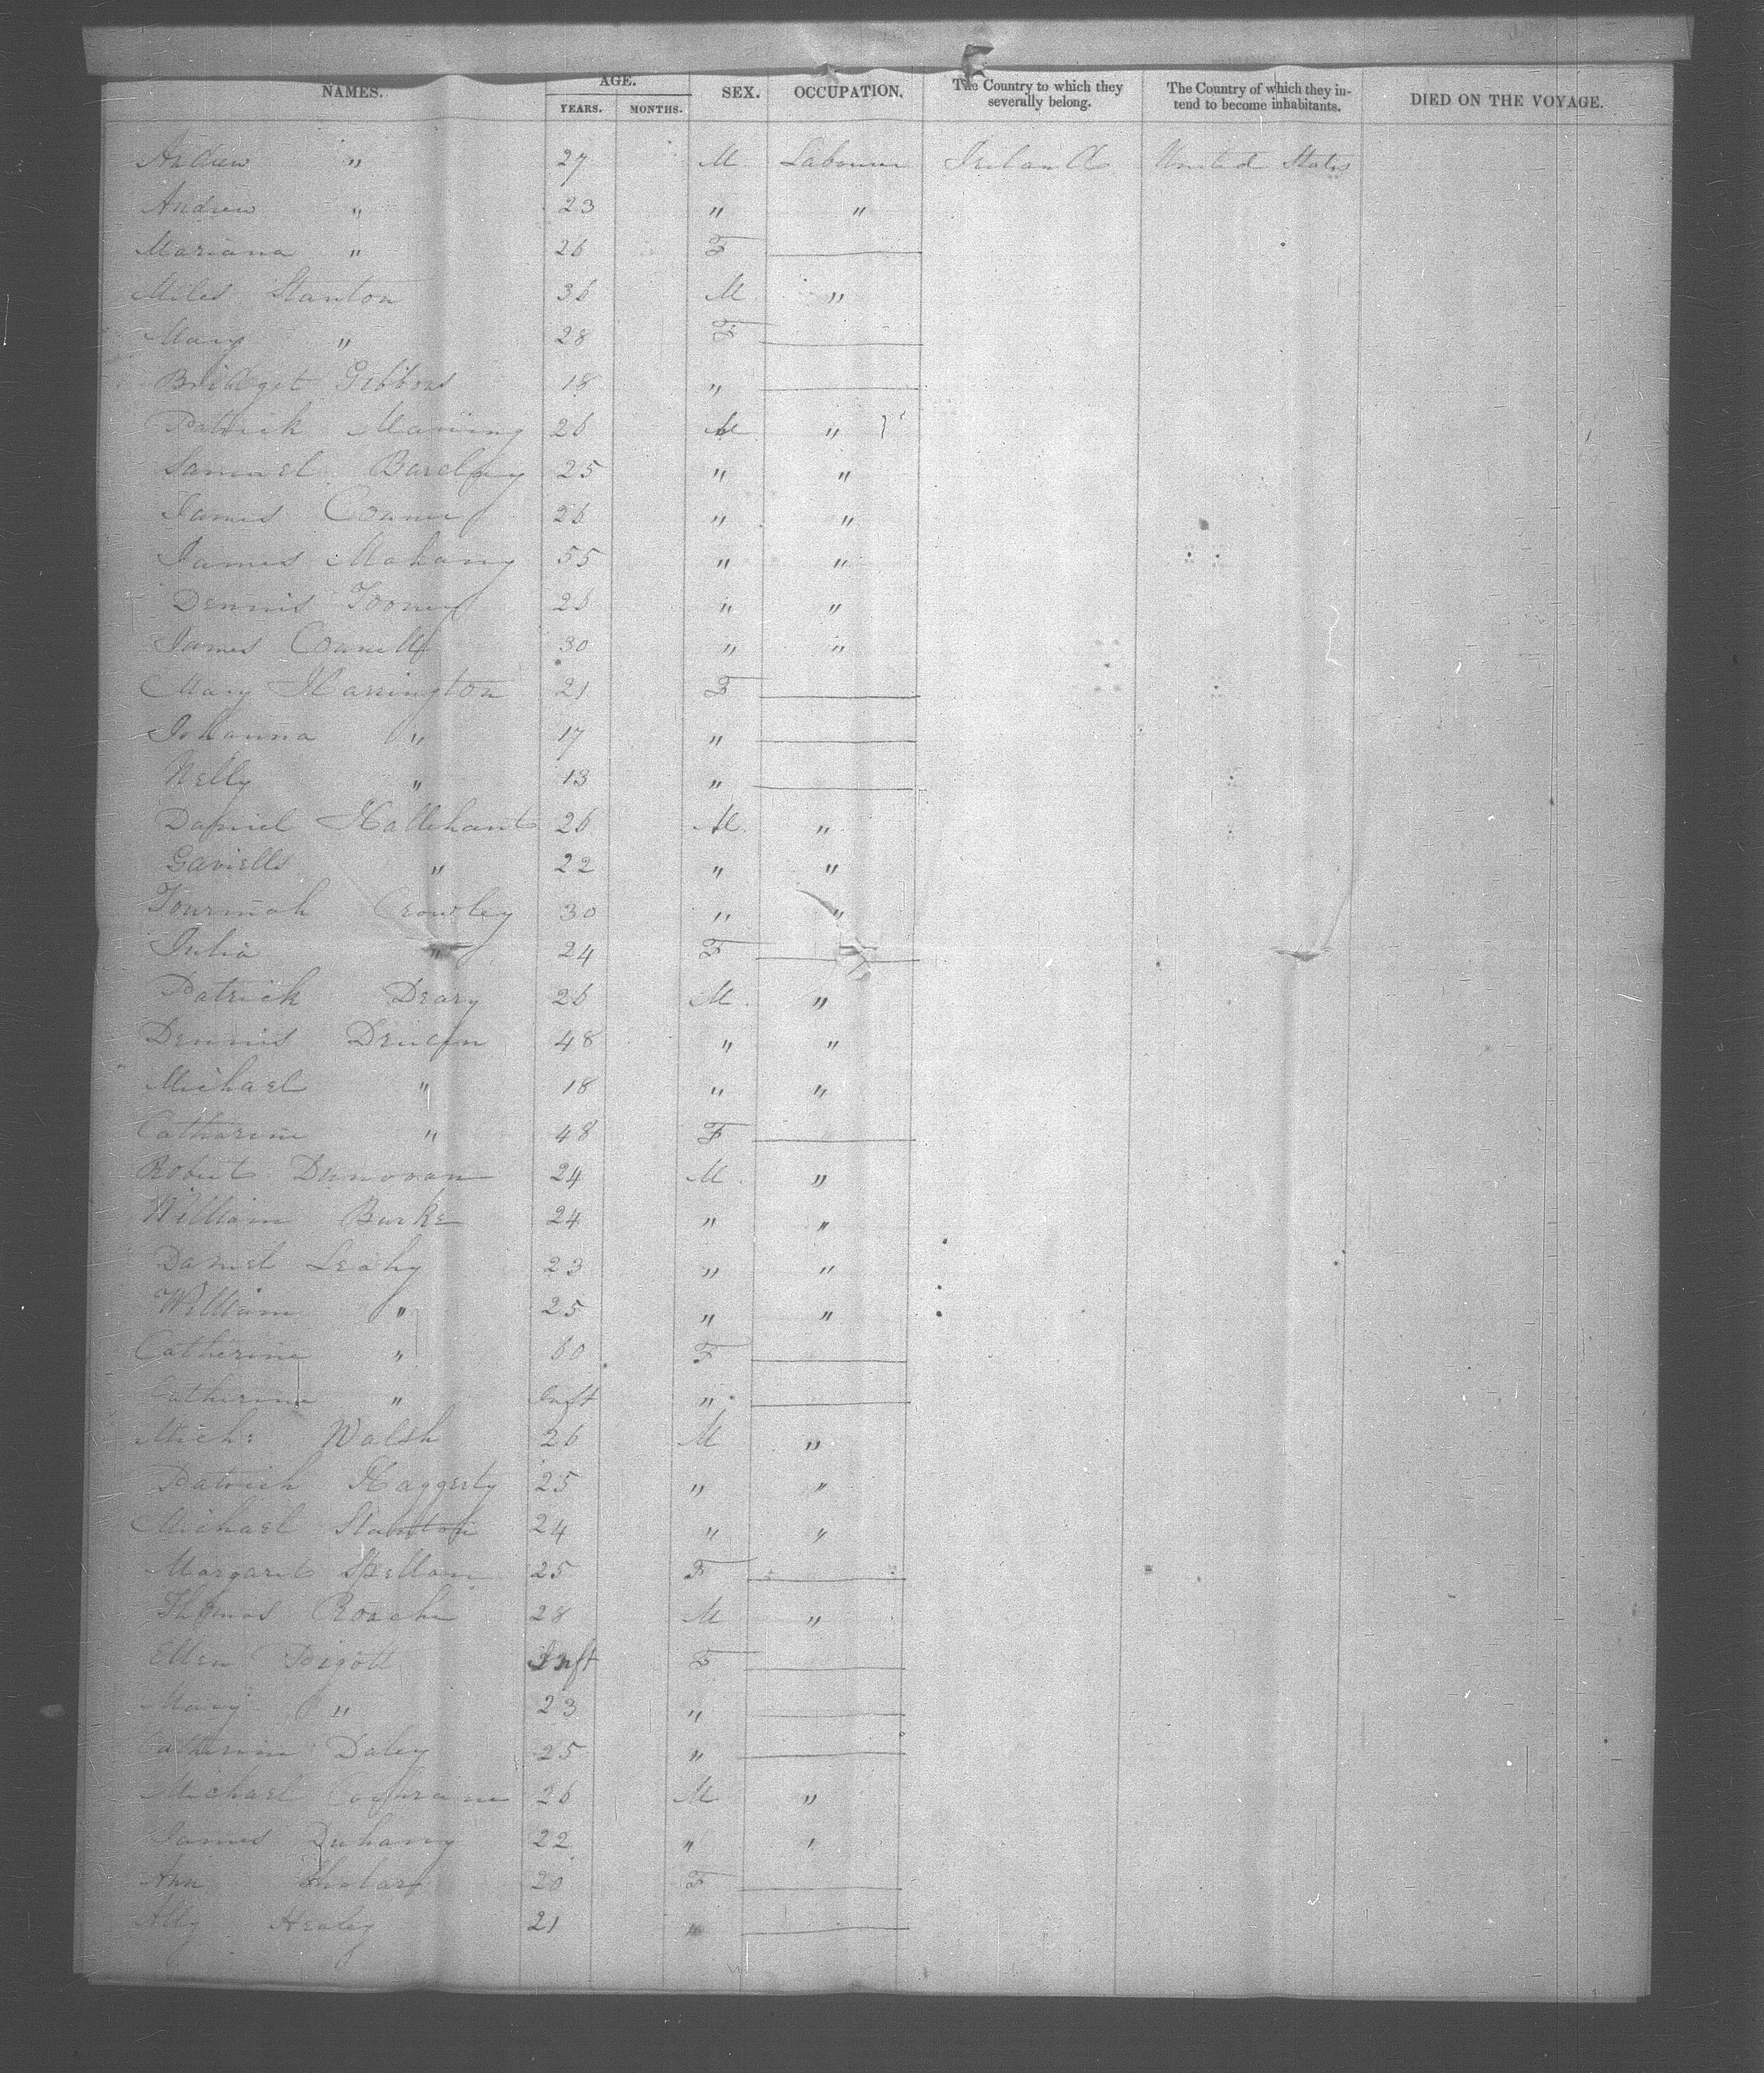 NAMES. AGE. SEX. OCCUPATION. The Country to which they severally belong. The Country of which they intend to become inhabitants. DIED ON THE VOYAGE.
YEARS. MONTHS.
Andrew " 27 M Labourer Ireland United States
Andrew " 23 " "
Mariana " 26 F
Miles Stanton 36 M "
Mary " 28 F
Bridget Gibbons 18 "
Patrick Maning 26 M "
Samuel Barclay 25 " "
James 26 " "
James Mahany 55 " "
Dennis Tooney 26 " "
James Connell 30 " "
Mary Harrington 21 F
Johanna " 17 "
Nelly " 13 "
Daniel 26 M "
" 22 " "
Crowley 30 " "
Julia " 24 F
Patrick Deary 26 M "
Dennis 48 " "
Michael " 18 " "
Catharine " 48 F
Robert Dunovan 24 M "
William Burke 24 " "
Daniel Leahy 23 " "
William " 25 " "
Catherine " 60 F
Catherine " Inft "
Mich: Walsh 26 M "
Patrick Haggerty 25 " "
Michael Stanton 24 " "
Margaret Spellam 25 F
Thomas Roache 28 M "
Ellen Pigott Inft F
Mary " 23 "
Catherine Daley 25 "
Michael 26 M "
James Duhany 22 " "
Ann 20 F
Ally Healey 21 "